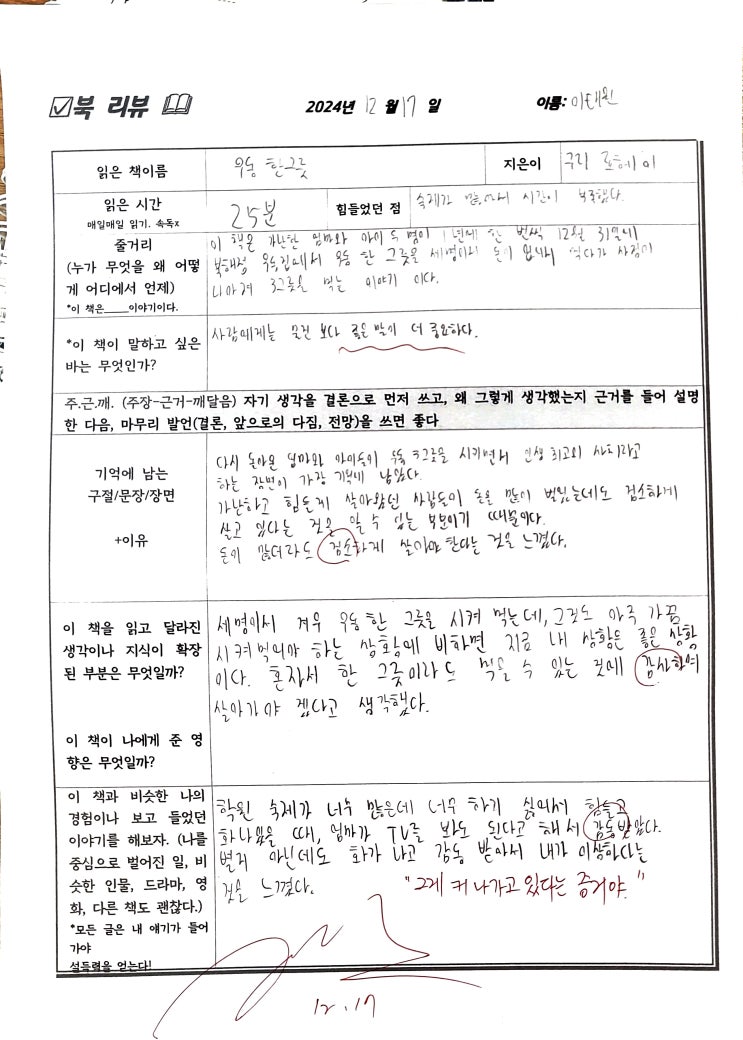 북 리뷰
2024년 12월 17일
이름: 이태원
읽은 책이름
우동 한그릇
지은이
구리 료헤이
읽은 시간
매일매일 읽기. 속독x
25분
힘들었던 점
숙제가 많아서 시간이 부족했다.
줄거리
(누가 무엇을 왜 어떻
게 어디에서 언제)
*이 책은____이야기이다.
이 책은 가난한 엄마와 아이 두 명이 1년에 한 번씩 12월 31일에
북해정 우동집에서 우동 한 그릇을 세명이서 돈이 없어서 먹다가 사정이
나아져 3그릇을 먹는 이야기 이다.
*이 책이 말하고 싶은
바는 무엇인가?
사람에게는 물건 보다 좋은 말이 더 중요하다.
주.근.깨. (주장-근거-깨달음) 자기 생각을 결론으로 먼저 쓰고, 왜 그렇게 생각했는지 근거를 들어 설명
한 다음, 마무리 발언(결론, 앞으로의 다짐, 전망)을 쓰면 좋다
기억에 남는
구절/문장/장면
+이유
다시 돌아온 엄마와 아이들이 우동 3그릇을 시키면서 인생 최고의 사치라고
하는 장면이 가장 기억에 남았다.
가난하고 힘들게 살아왔던 사람들이 돈을 많이 벌었는데도 검소하게
살고 있다는 것을 알 수 있는 부분이기 때문이다.
돈이 많더라도 검소하게 살아야 한다는 것을 느꼈다.
이 책을 읽고 달라진
생각이나 지식이 확장
된 부분은 무엇일까?
이 책이 나에게 준 영
향은 무엇일까?
세명이서 겨우 우동 한 그릇을 시켜 먹는데, 그것도 아주 가끔
시켜먹어야 하는 상황에 비하면 지금 내 상황은 좋은 상황
이다. 혼자서 한 그릇이라도 먹을 수 있는 것에 감사하며
살아가야 겠다고 생각했다.
이 책과 비슷한 나의
경험이나 보고 들었던
이야기를 해보자. (나를
중심으로 벌어진 일, 비
슷한 인물, 드라마, 영
화, 다른 책도 괜찮다.)
*모든 글은 내 얘기가 들어
가야
설득력을 얻는다!
학원 숙제가 너무 많은데 너무 하기 싫어서 힘들고
화나있을 때, 엄마가 TV를 봐도 된다고 해서 감동받았다.
별거 아닌데도 화가 나고 감동 받아서 내가 이상하다는
것을 느꼈다.
"그게 커 나가고 있다는 증거야."
12.17